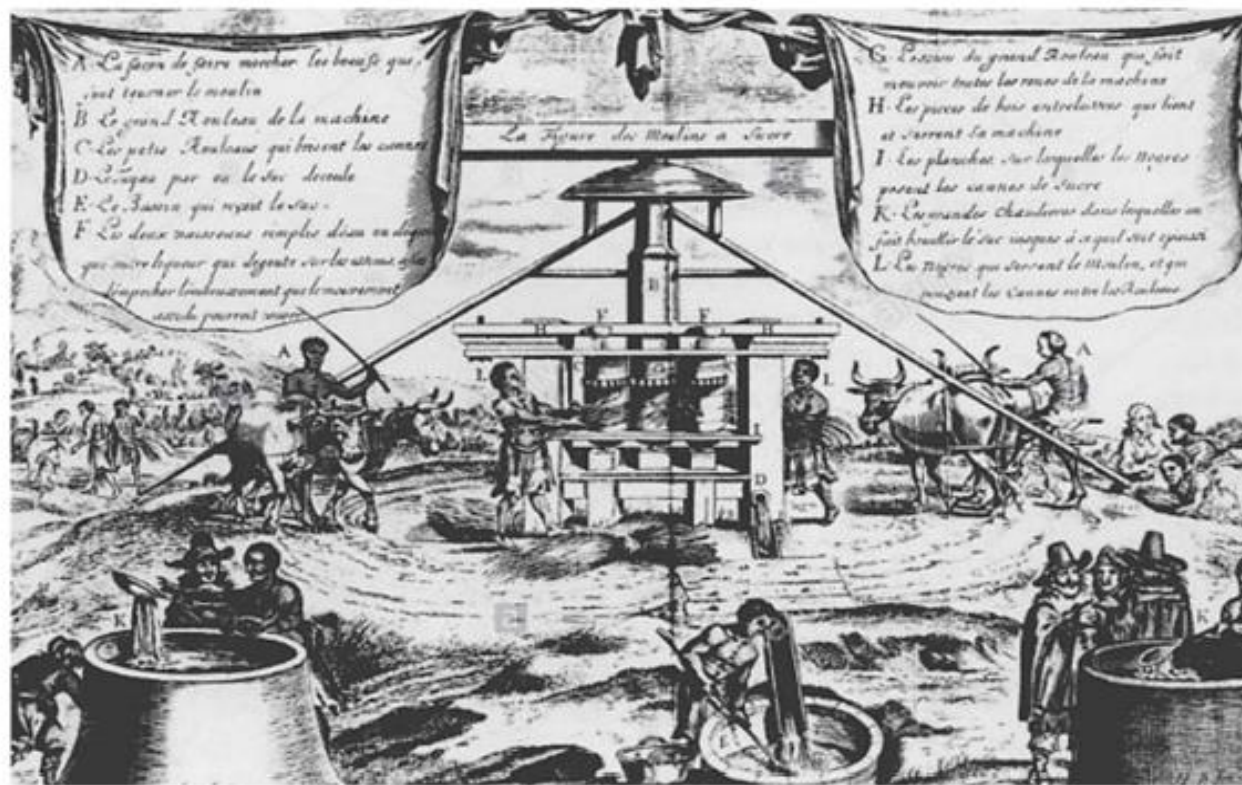 A. La façon de faire marcher les beufs qui
font tourner le moulin
B. Le grand Rouleau de la machine
C. Les petis Rouleaux qui brisent les cannes
D. par ou le suc decoule
E. Le Bassin qui reçoit le suc.
F. Les deux vaisseaux remplis d'eau ou de
que autre liqueur qui degoute sur les essieux, afin
d'empecher l'embrazement que le mouvement
pourroit
La Figure des Moulins a Sucre
G. du grand Rouleau qui fait
mouvoir toutes les roues de la machine
H. Les pieces de bois entrelassees qui lient
et serrent la machine
I. Les planches sur lesquelles les Negres
posent les cannes de sucre
K. Les grandes chaudieres dans lesquelles on
fait bouillir le suc jusques à ce qu'il soit
L. Les Negres qui servent le Moulin, et qui
les cannes entre les Rouleaux
A
B
F
F
H
H
L
L
A
I
D
E
K
K